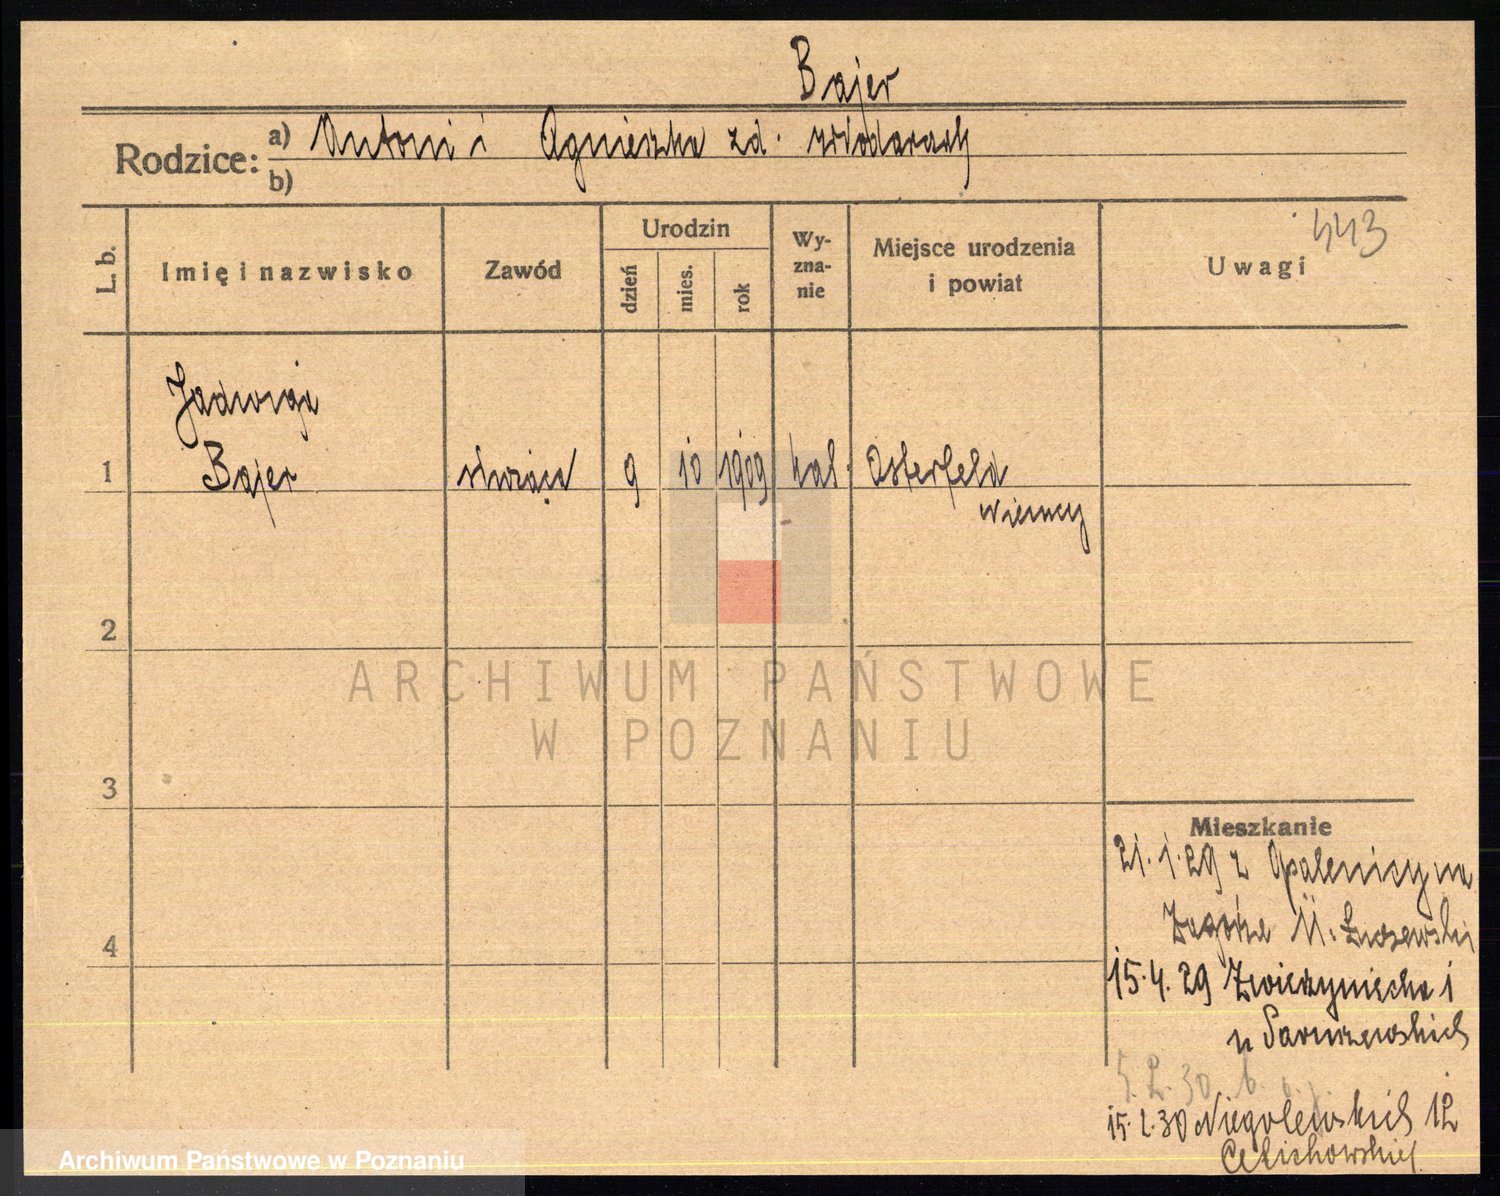 Bajer
Rodzice: a) Antoni i Agnieszka zd.
b)
443
L. b.
Imię i nazwisko
Zawód
Urodzin
dzień
mies.
rok
Wy-
zna-
nie
Miejsce urodzenia
i powiat
Uwagi
Jadwiga
1 Bajer służąca 9 10 1909 kat. Osterfeld
Niemcy
2
ARCHIWUM PAŃSTWOWE
W POZNANIU
3
Mieszkanie
21.1.29 z Opalenicy na
4
15.4.29 Zwierzyniecka 1
u
30
15.2.30 Niegolewskich 12
Archiwum Państwowe w Poznaniu